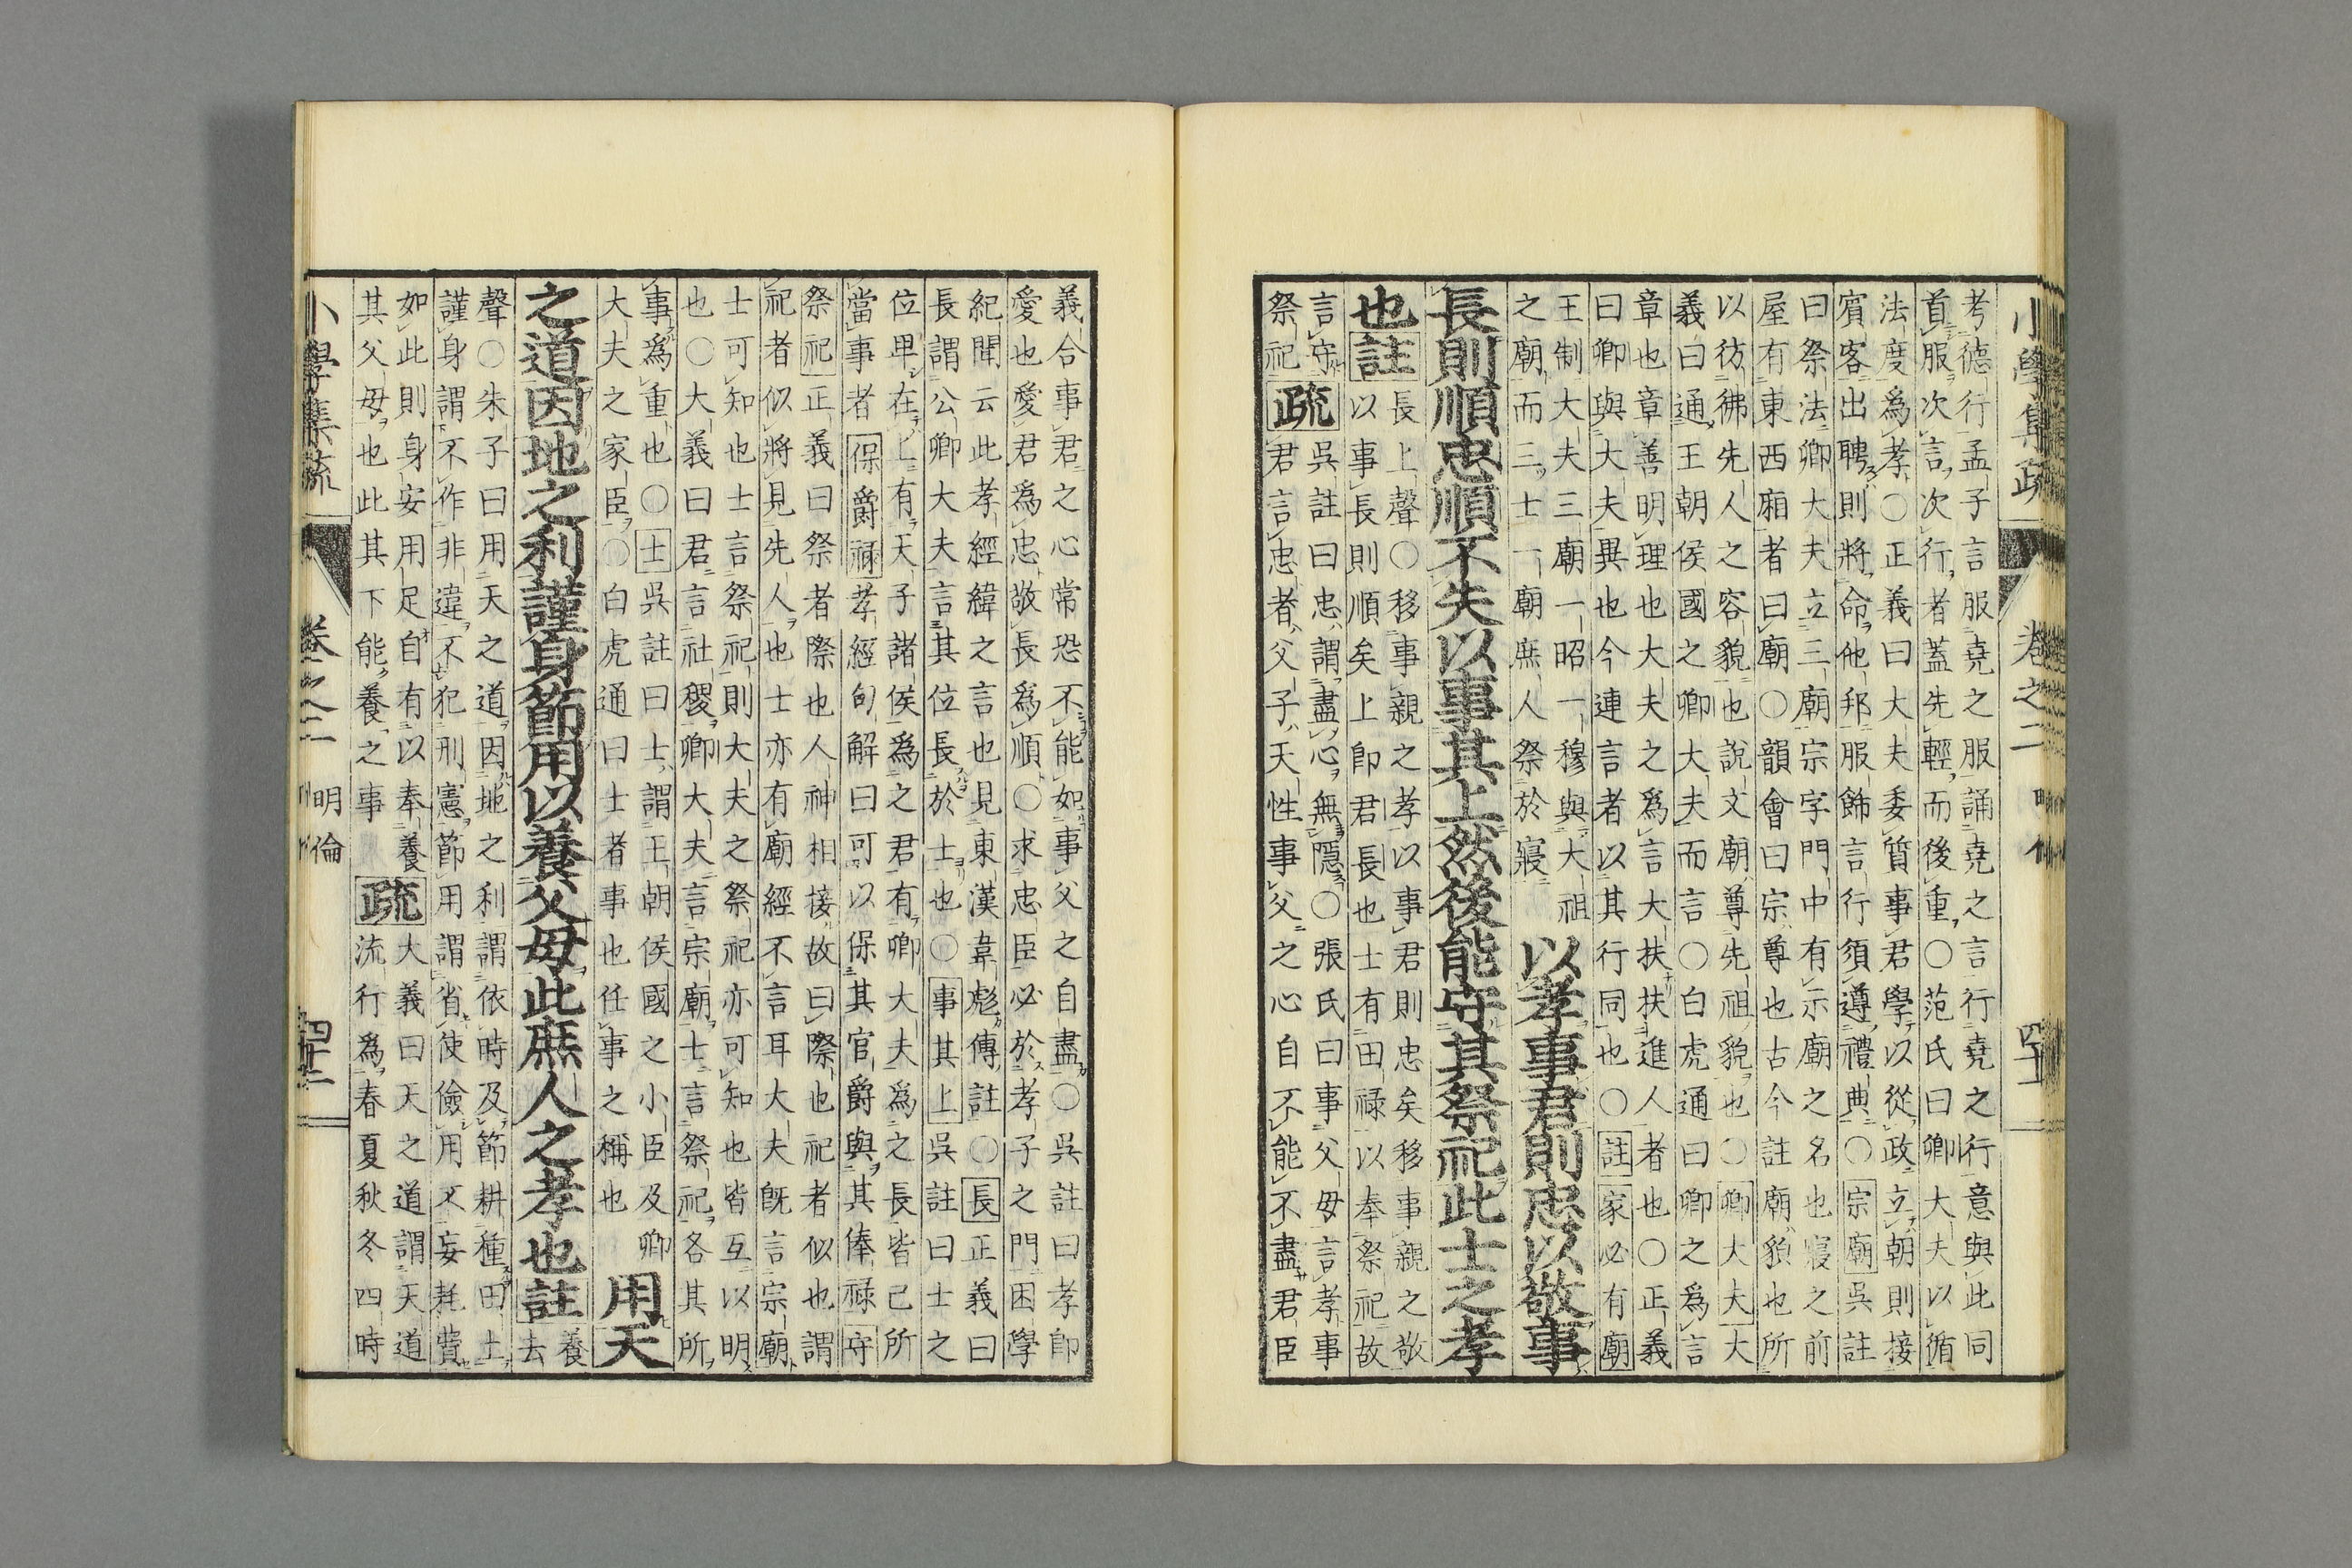 考德行孟子言服堯之服誦堯之言行堯之行意與此同
首服次言次行者蓋先輕而後重○范氏曰卿大夫以循
法度為孝○正義曰大夫委質事君學以從政立朝則接
賓客出聘則將命他邦服飾言行須遵禮典○宗廟吳註
曰祭法卿大夫立三廟宗字門中有示廟之名也寢之前
屋有東西廂者曰廟○韻會曰宗尊也古今註廟貌也所
以彷彿先人之容貌也說文廟尊先祖貌也○卿大夫大
義曰通王朝侯國之卿大夫而言○白虎通曰卿之為言
章也章善明理也大夫之為言大扶扶進人者也○正義
曰卿與大夫異也今連言者以其行同也○註家必有廟
王制大夫三廟一昭一穆與大祖
之廟而三士一廟庶人祭於寢
以孝事君則忠以敬事
長則順忠順不失以事其上然後能守其祭祀此士之孝
也註
長上聲○移事親之孝以事君則忠矣移事親之敬
以事長則順矣上卽君長也士有田祿以奉祭祀故
言守
祭祀
疏
吳註曰忠謂盡心無隱○張氏曰事父母言孝事
君言忠者父子天性事父之心自不能不盡君臣
小學集疏
卷之二
明倫
義合事君之心常恐不能如事父之自盡○吳註曰孝卽
愛也愛君為忠敬長為順○求忠臣必於孝子之門困學
紀聞云此孝經緯之言也見東漢韋彪傳註○長正義曰
長謂公卿大夫言其位長於士也○事其上吳註曰士之
位卑在上有天子諸侯為之君有卿大夫為之長皆己所
當事者保爵祿孝經句解曰可以保其官爵與其俸祿守
祭祀正義曰祭者際也人神相接故曰際也祀者似也謂
祀者似將見先人也士亦有廟經不言耳大夫旣言宗廟
士可知也士言祭祀則大夫之祭祀亦可知也皆互以明
也○大義曰君言社稷卿大夫言宗廟士言祭祀各其所
事為重也○士吳註曰士謂王朝侯國之小臣及卿
大夫之家臣○白虎通曰士者事也任事之稱也
用天
之道因地之利謹身節用以養父母此庶人之孝也註
養
去
聲○朱子曰用天之道因地之利謂依時及節耕種田土
謹身謂不作非違不犯刑憲節用謂省使儉用不妄耗費
如此則身安用足自有以奉養
其父母也此其下能養之事
疏
大義曰天之道謂天道
流行為春夏秋冬四時
小學集疏
卷之二
明倫
四十二